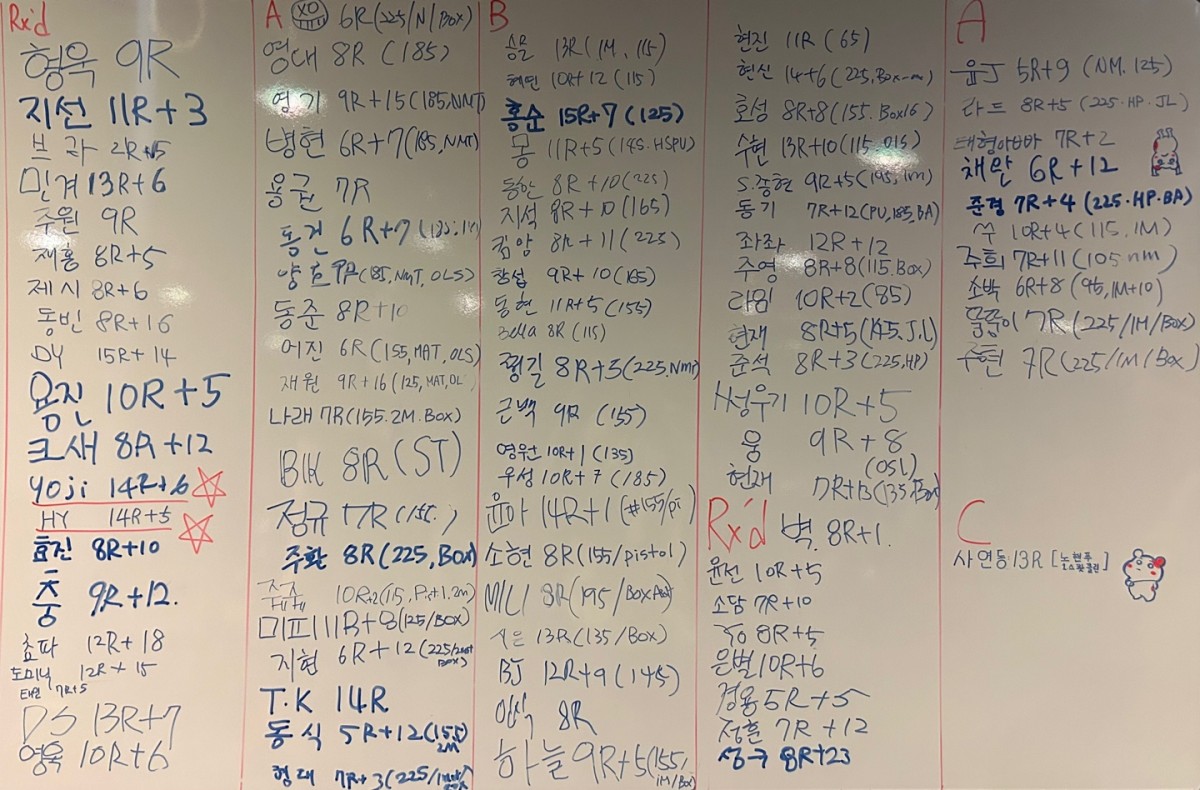 Rx'd
형욱 9R
지선 11R+3
브라 2R+15
민경 13R+6
주원 9R
재홍 8R+5
제시 8R+6
동빈 8R+16
DY 15R+14
용진 10R+5
크새 8R+12
yoji 14R+6
HY 14R+5
효진 8R+10
춍 9R+12.
쵸파 12R+18
도미닉 12R+15
태원 7R+5
DS 13R+7
영욱 10R+6
A XO 6R(225/N/Box)
영대 8R (185)
영기 9R+15(185,NMT)
병현 6R+7(185,NMT)
용균 7R
동건 6R+7
양호 9R(185, NMT, OLS)
동준 8R+10
어진 6R(155,MAT,OLS)
재원 9R+16(125,MAT,OL
나래 7R(155.2M.Box)
BK 8R(ST)
정규
주환 8R(225,Box)
10R+2
미피 11R+8(125/BOX)
지현 6R+12(225/
T.K 14R
동식 5R+12(155
2M
형대 7R+3(225/
B
승모 13R(1M, 115)
혜민 10R+12(115)
홍순 15R+7 (125)
몽 11R+5(145.HSPU)
동한 8R+10(225)
지석 8R+10(165)
검양 8R+11(225)
창섭 9R+10(165)
동현 11R+5(155)
Bella 8R(115)
평길 8R+3(225.Nmt
근백 9R (155)
영우산 10R+1(135)
우성 10R+7 (185)
윤아 14R+1(#155/pi
소현 8R(155/pistol)
MILI 8R(195/Box
시은 13R(135/Box)
BJ 12R+9(145)
양식 8R
하늘 9R+5(155/
1M/Box)
현진 11R(65)
현신 14+6(225,Box
호성 8R+8(155.Box16)
수현 13R+10(115.OLS)
S.중현 9R+5(195,1M)
동기 7R+12(PU,185,BA)
좌좌 12R+12
주영 8R+8(115.Box)
라임 10R+2(85)
현재 8R+5(145.J.L)
준석 8R+3(225,HP)
H성우기 10R+5
웅 9R+8
(OSL)
현재 (135.Box)
Rx'd 벽. 8R+1.
윤선 10R+5
소담 7R+10
8R+5
은별 10R+6
경용 5R+5
정훈 7R+12
8R+23
A
윤J 5R+9 (NM.125)
라드 8R+5(225.HP.JL)
태형아빠 7R+2
채만 6R+12
준경 7R+4(225.HP.BA)
쑤 10R+4(115.1M)
주희 7R+11(105nm)
소박 6R+8(95,1M+10)
뭄뭄이 7R(225/1M/Box)
주현 7R(225/1M/Box)
C
사연동 13R